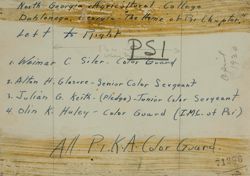 North Georgia Agricultural College
Dahlonega, Georgia The Home of Psi Chapter
Left to Right
PSI
April 1920
1. Weimar C Siler. Color Guard
2. Alton H. Glasure - Senior Color Sergeant
3. Julian G. Keith - (Pledge) - Junior Color Sergeant
4. Olin K. Haley - Color Guard (I.M.C. of Psi)
All Pi.K.A Color Guard.